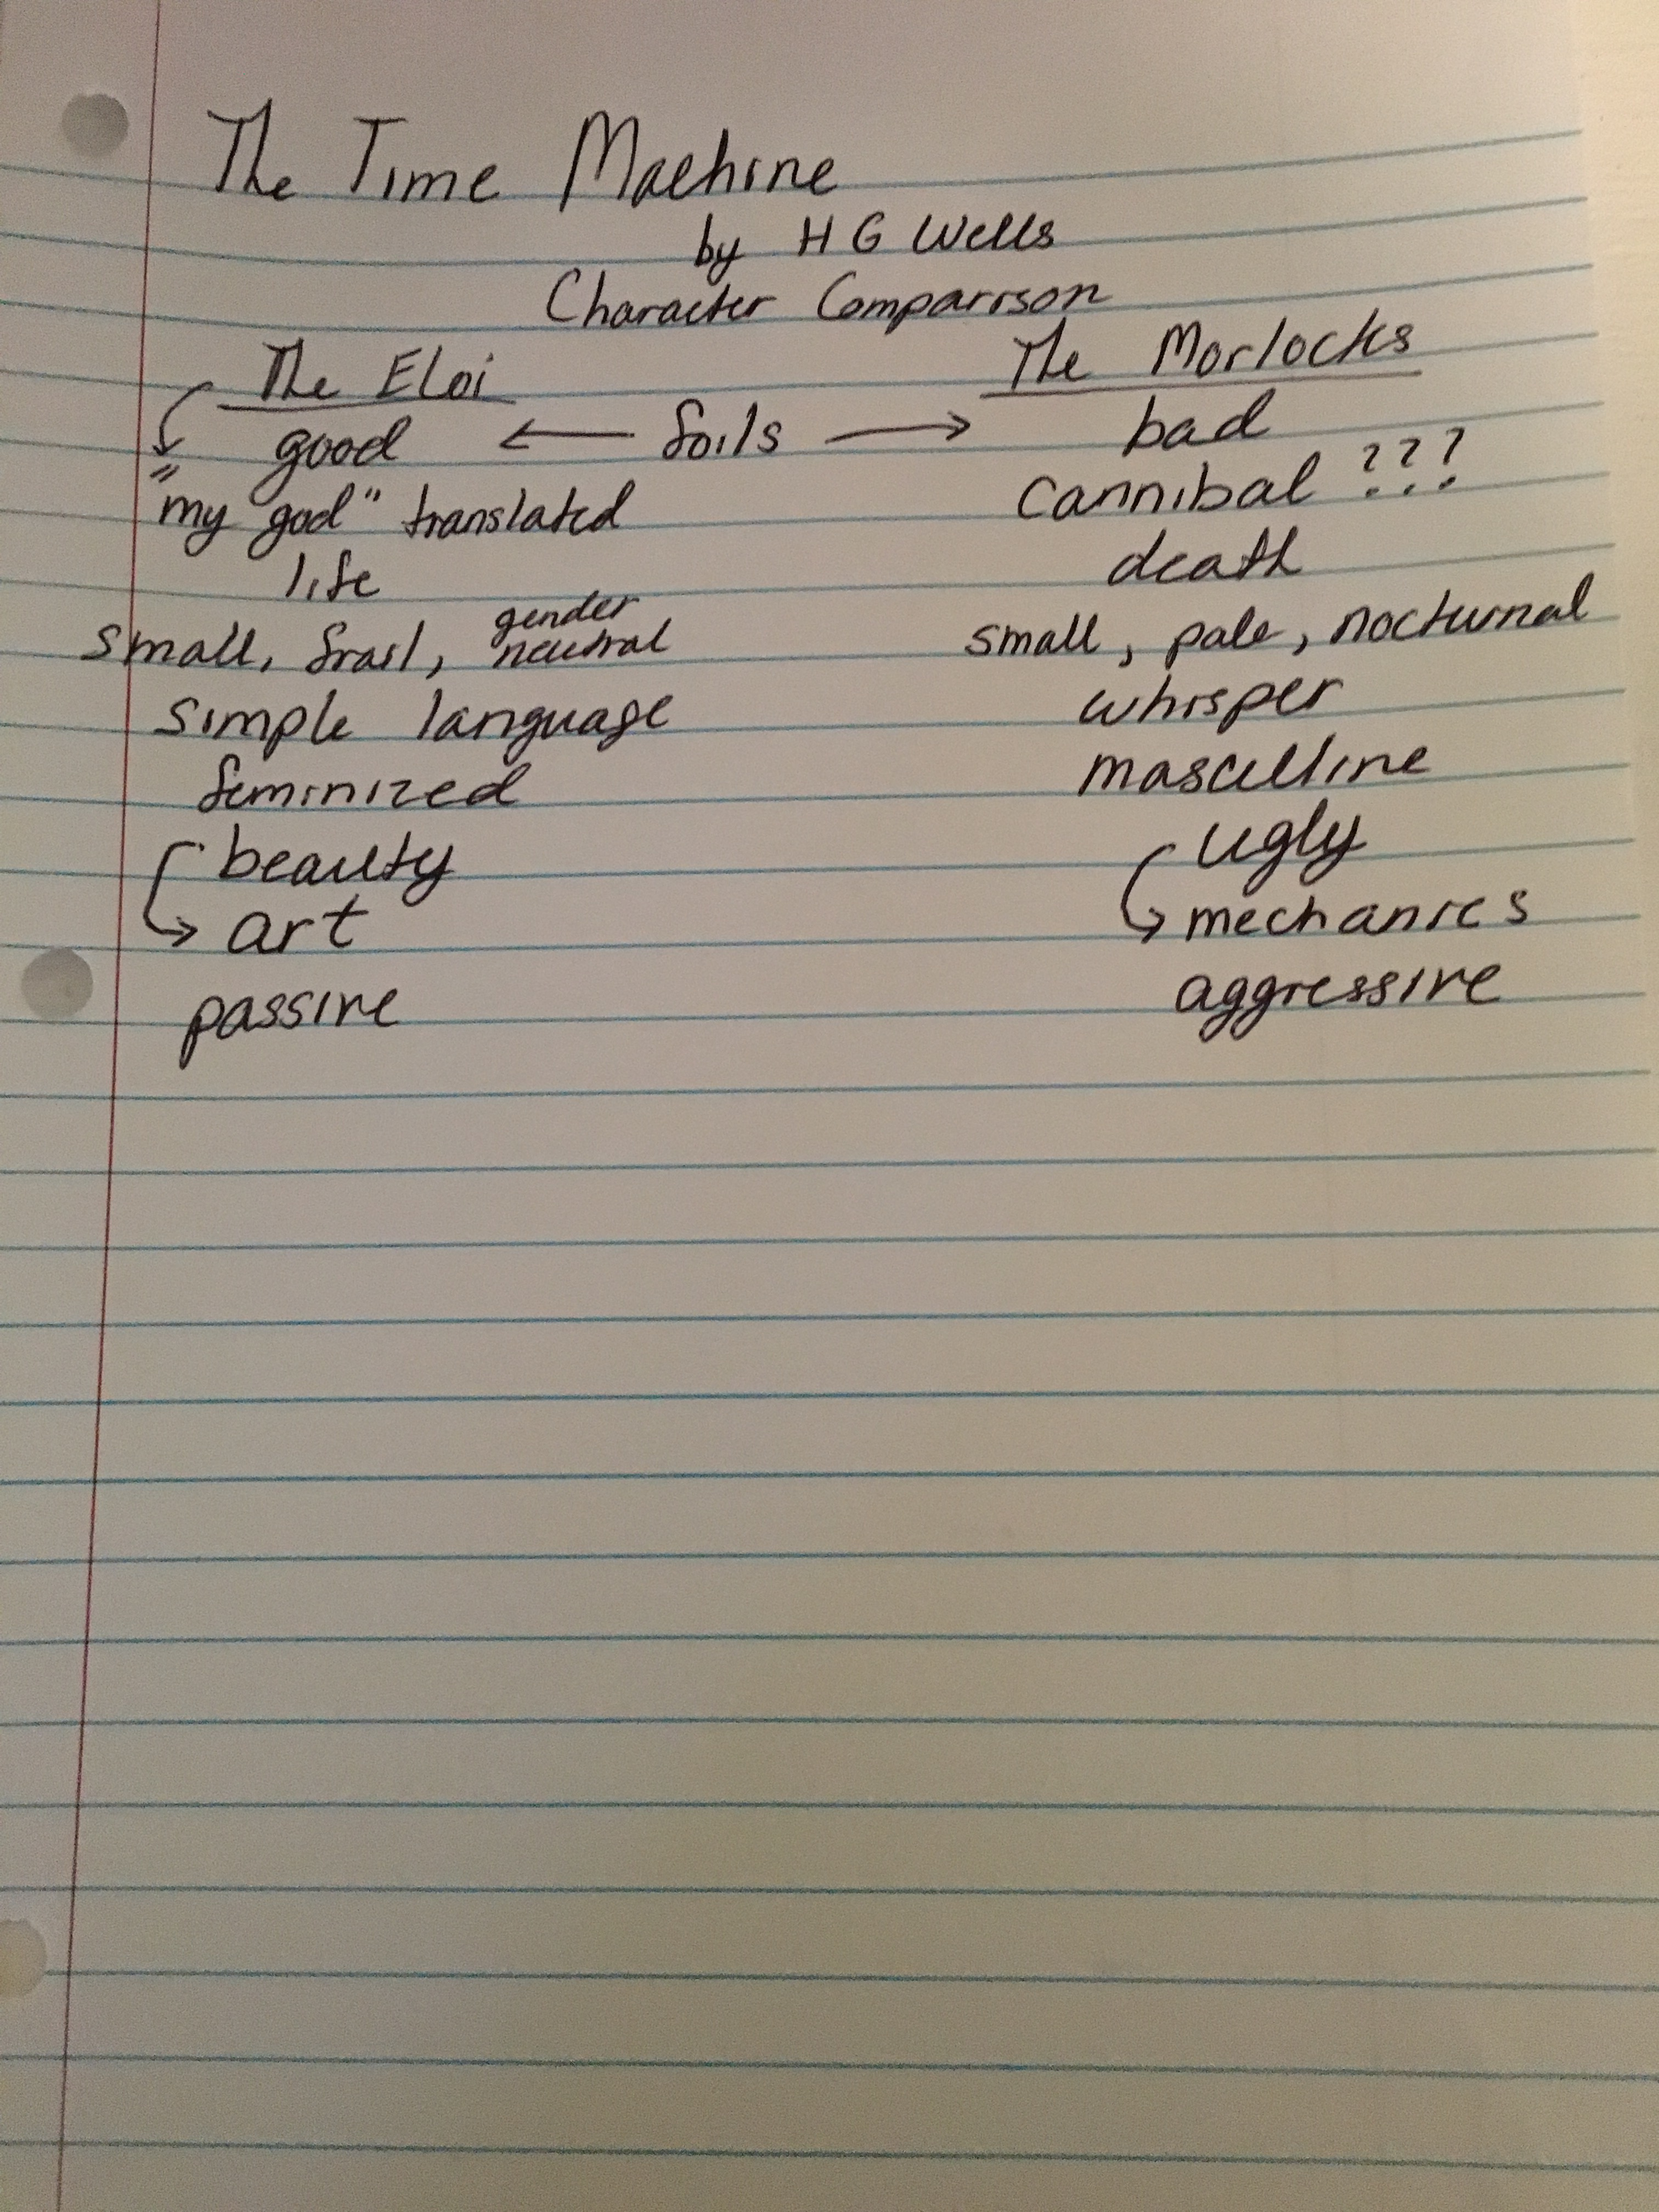 The Time Machine
by H G Wells
Character Comparison
The Eloi The Morlocks
good ← foils → bad
"my god" translated cannibal ???
life death
small, frail, gender neutral small, pale, nocturnal
simple language whisper
feminized masculine
beauty ugly
→ art → mechanics
passive aggressive